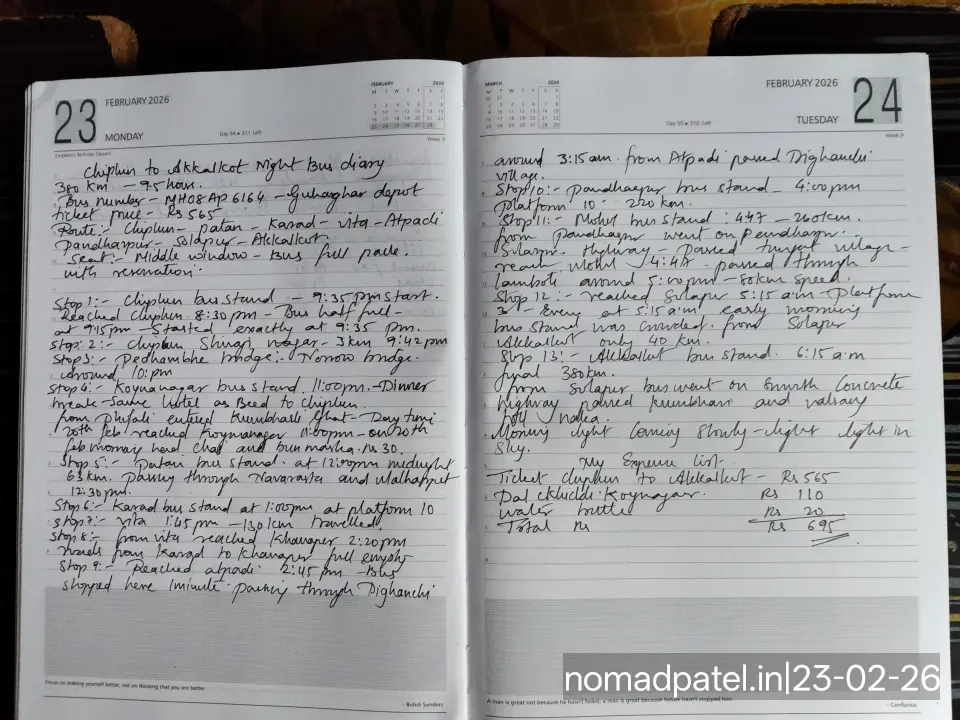 23
FEBRUARY 2026
MONDAY
FEBRUARY 2026
Day 54 • 311 Left
Week 9
Chiplun to Akkalkot Night Bus diary
380 km – 9.5 hours.
Bus number – MH08AP6164 – Guhaghar depot
ticket price – Rs 565
Route:- Chiplun – patan – Karad – vita – Atpadi
Pandharpur – Solapur – Akkalkot.
Seat:- Middle window – Bus full pack.
with reservation.
Stop 1:- Chiplun bus stand – 9:35 pm start.
Reached Chiplun 8:30 pm – Bus half full –
at 9:15 pm – Started exactly at 9:35 pm.
Stop: 2:- Chiplun Shivaji nagar – 3 km 9:42 pm
Stop 3:- Pedhambhe bridge:- Narrow bridge.
around 10: pm
Stop 4:- Koynanagar bus stand. 11:00 pm. – Dinner
break – Same hotel as Beed to Chiplun.
from entered Kumbharli Ghat – Day time
20th feb reached Koynanagar 11:00 pm – on 20th
feb morning had Chai and bun maska. Rs 30.
Stop 5:- Patan bus stand. at 12:00 pm midnight
63 km. passing through Navarasta and Malharpet
12:30 pm.
Stop 6:- Karad bus stand at 1:00 pm at platform 10
Stop 7:- vita 1:45 pm – 130 km travelled.
Stop 8:- from vita reached Khanapur 2:20 pm
roads from Karad to Khanapur full empty
Stop 9:- Reached atpadi 2:45 pm – Bus
stopped here 1 minute. passing through Dighanchi
Focus on making yourself better, not on thinking that you are better.
- Bohdi Sanders
MARCH 2026
FEBRUARY 2026
TUESDAY
24
Day 55 • 310 Left
Week 9
around 3:15 am. from Atpadi passed Dighanchi
village.
Stop 10:- Pandharpur bus stand – 4:00 pm
Platform 10 220 km.
Stop 11:- Mohol bus stand : 4:47 – 260 km.
from Pandharpur went on Pandharpur
Solapur Highway – Passed village –
reach Mohol 4:47 – passed through
Lamboti around 5:00 pm – 80 km speed.
Stop 12:- reached Solapur 5:15 a.m Platform
3 – Every at 5:15 a.m early morning
bus stand was crowded. from Solapur
Akkalkot only 40 km.
Stop 13:- Akkalkot bus stand. 6:15 a.m
final 380 km.
from Solapur bus went on smooth Concrete
highway passed Kumbhari and valsang
toll naka.
Morning light coming slowly – light light in
sky.
My Expense list
Ticket chiplun to Akkalkot – Rs 565
Dal khichdi Koynagar. Rs 110
water bottle Rs 20
Total Rs Rs 695
A man is great not because he hasn't failed; a man is great because failure hasn't stopped him.
- Confucius
nomadpatel.in|23-02-26